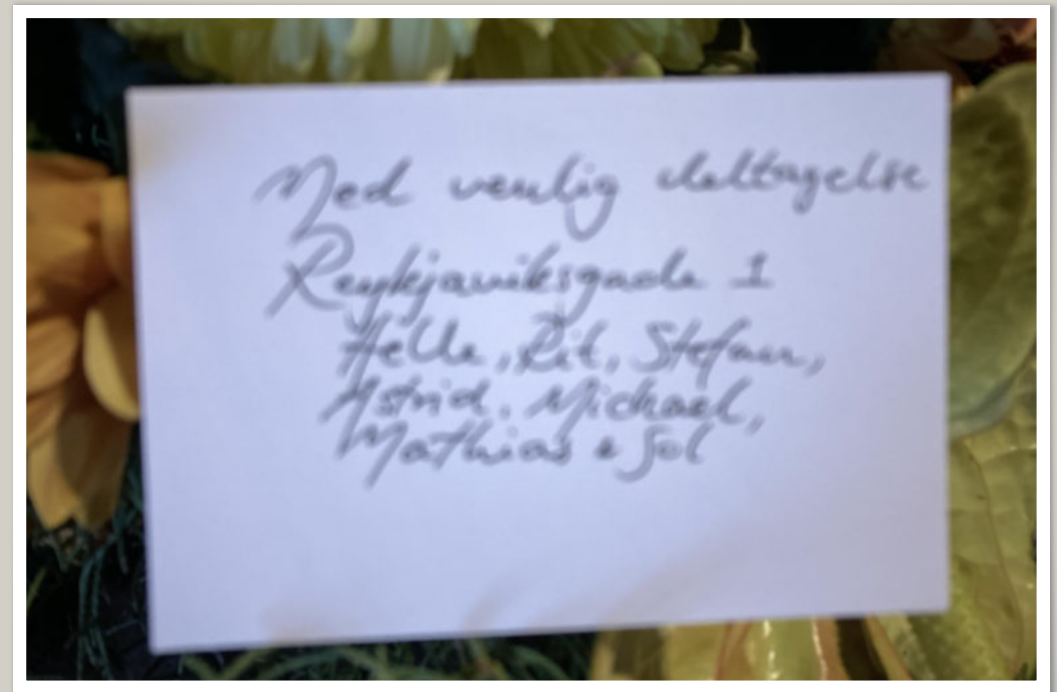 Med venlig deltagelse
Reykjaviksgade 1
Helle, Rit, Stefan,
Astrid, Michael,
Mathias & Sol